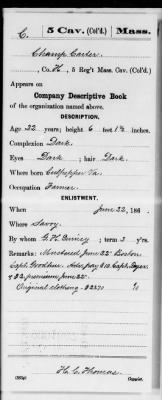 C. 5 Cav. (Col'd.) Mass.
Champ Carter
, Co. H, 5 Reg't Mass. Cav. (Col'd.)
Appears on
Company Descriptive Book
of the organization named above.
DESCRIPTION.
Age 22 years; height 6 feet 1½ inches.
Complexion Dark.
Eyes Dark; hair Dark.
Where born Culpepper Va.
Occupation Farmer.
ENLISTMENT.
When June 22, 186 .
Where Savoy.
By whom term 3 y'rs.
Remarks: Mustered June 22 Boston
Capt. Goodhue. Adv. pay $13. Capt.
& $2. premium June 22.
Original clothing - $23 70
H. C. Thomas
Copyist.